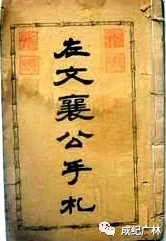 左文襄公手札
成纪广林